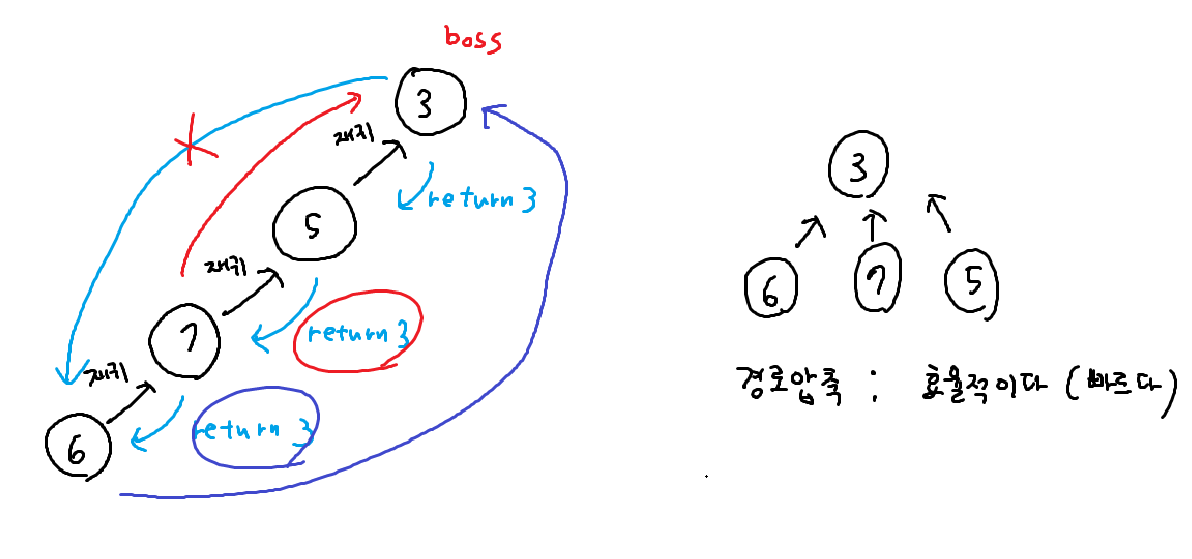 boss
3
재귀
return 3
5
재귀
return 3
7
재귀
return 3
6
3
6 7 5
경로압축 : 효율적이다 (빠르다)